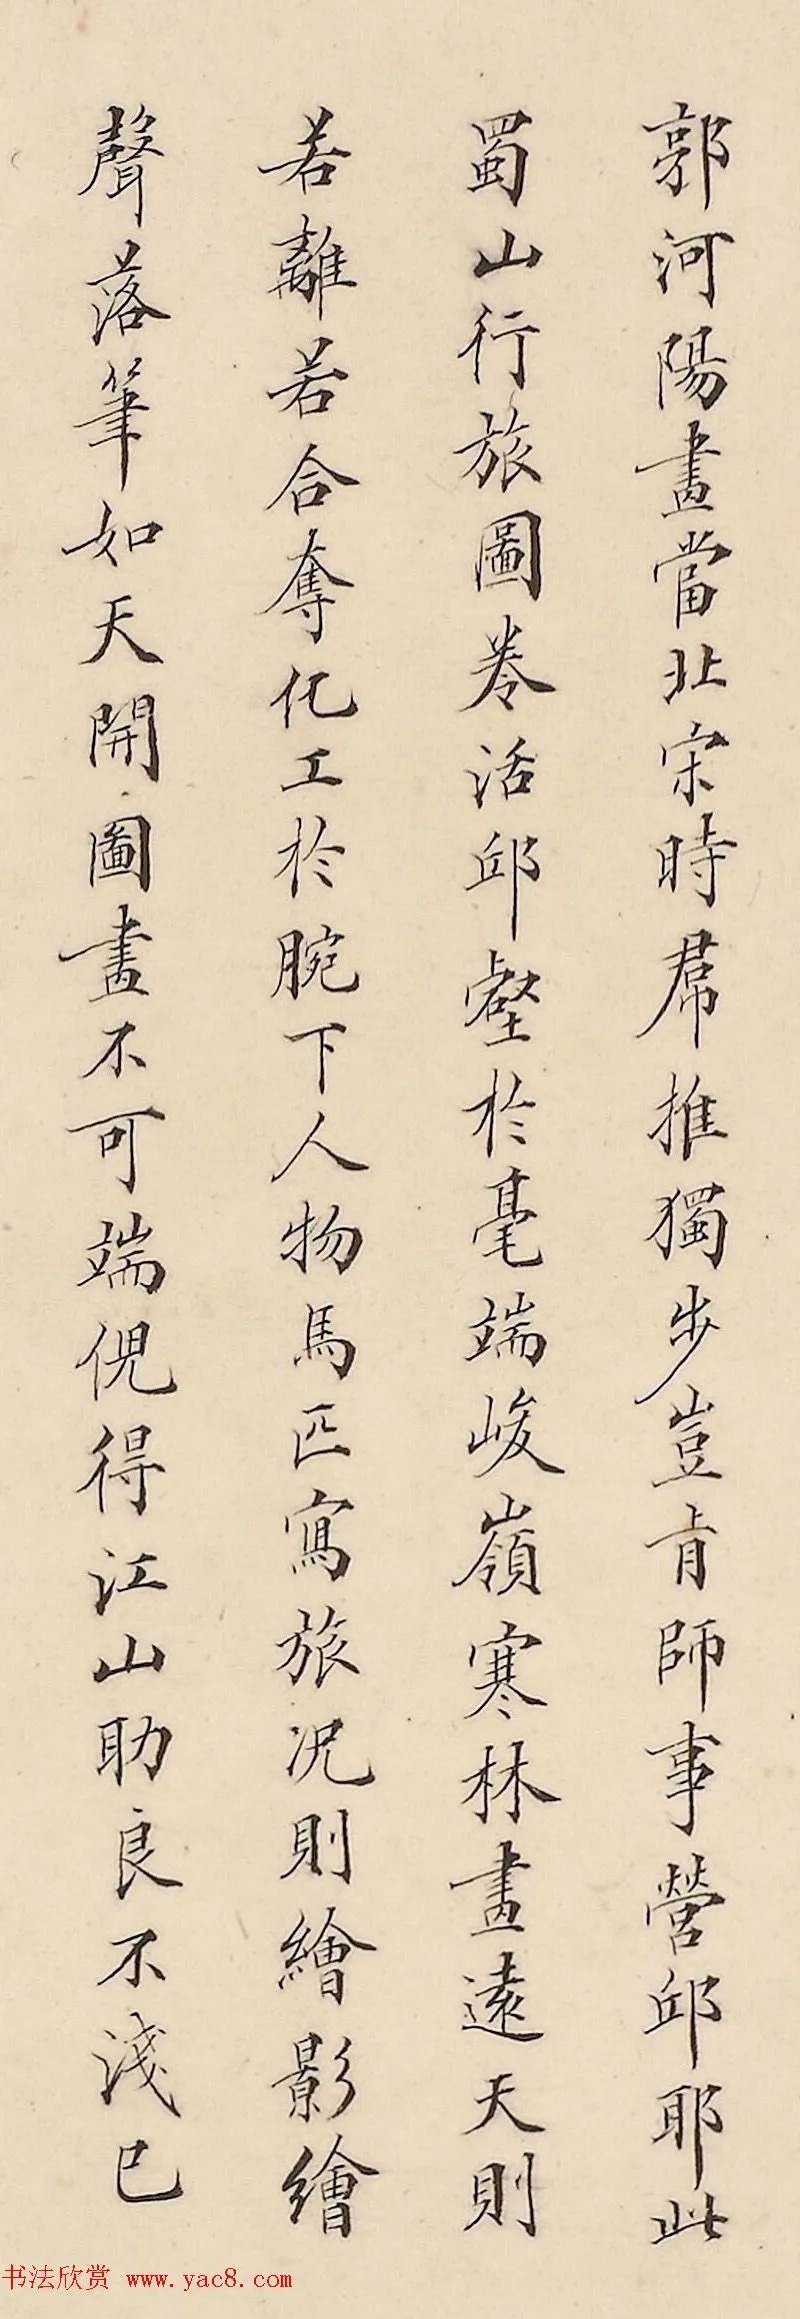 郭河陽畫當北宋時羣推獨步豈肯師事營邱耶此
蜀山行旅圖卷活邱壑於毫端峻嶺寒林畫遠天則
若離若合奪化工於腕下人物馬匹寫旅况則繪影繪
聲落筆如天開圖畫不可端倪得江山助良不淺已
书法欣赏 www.yac8.com